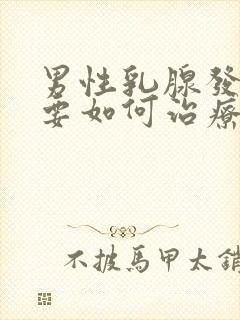 男性乳腺發
要如何治療
不披馬甲太銷